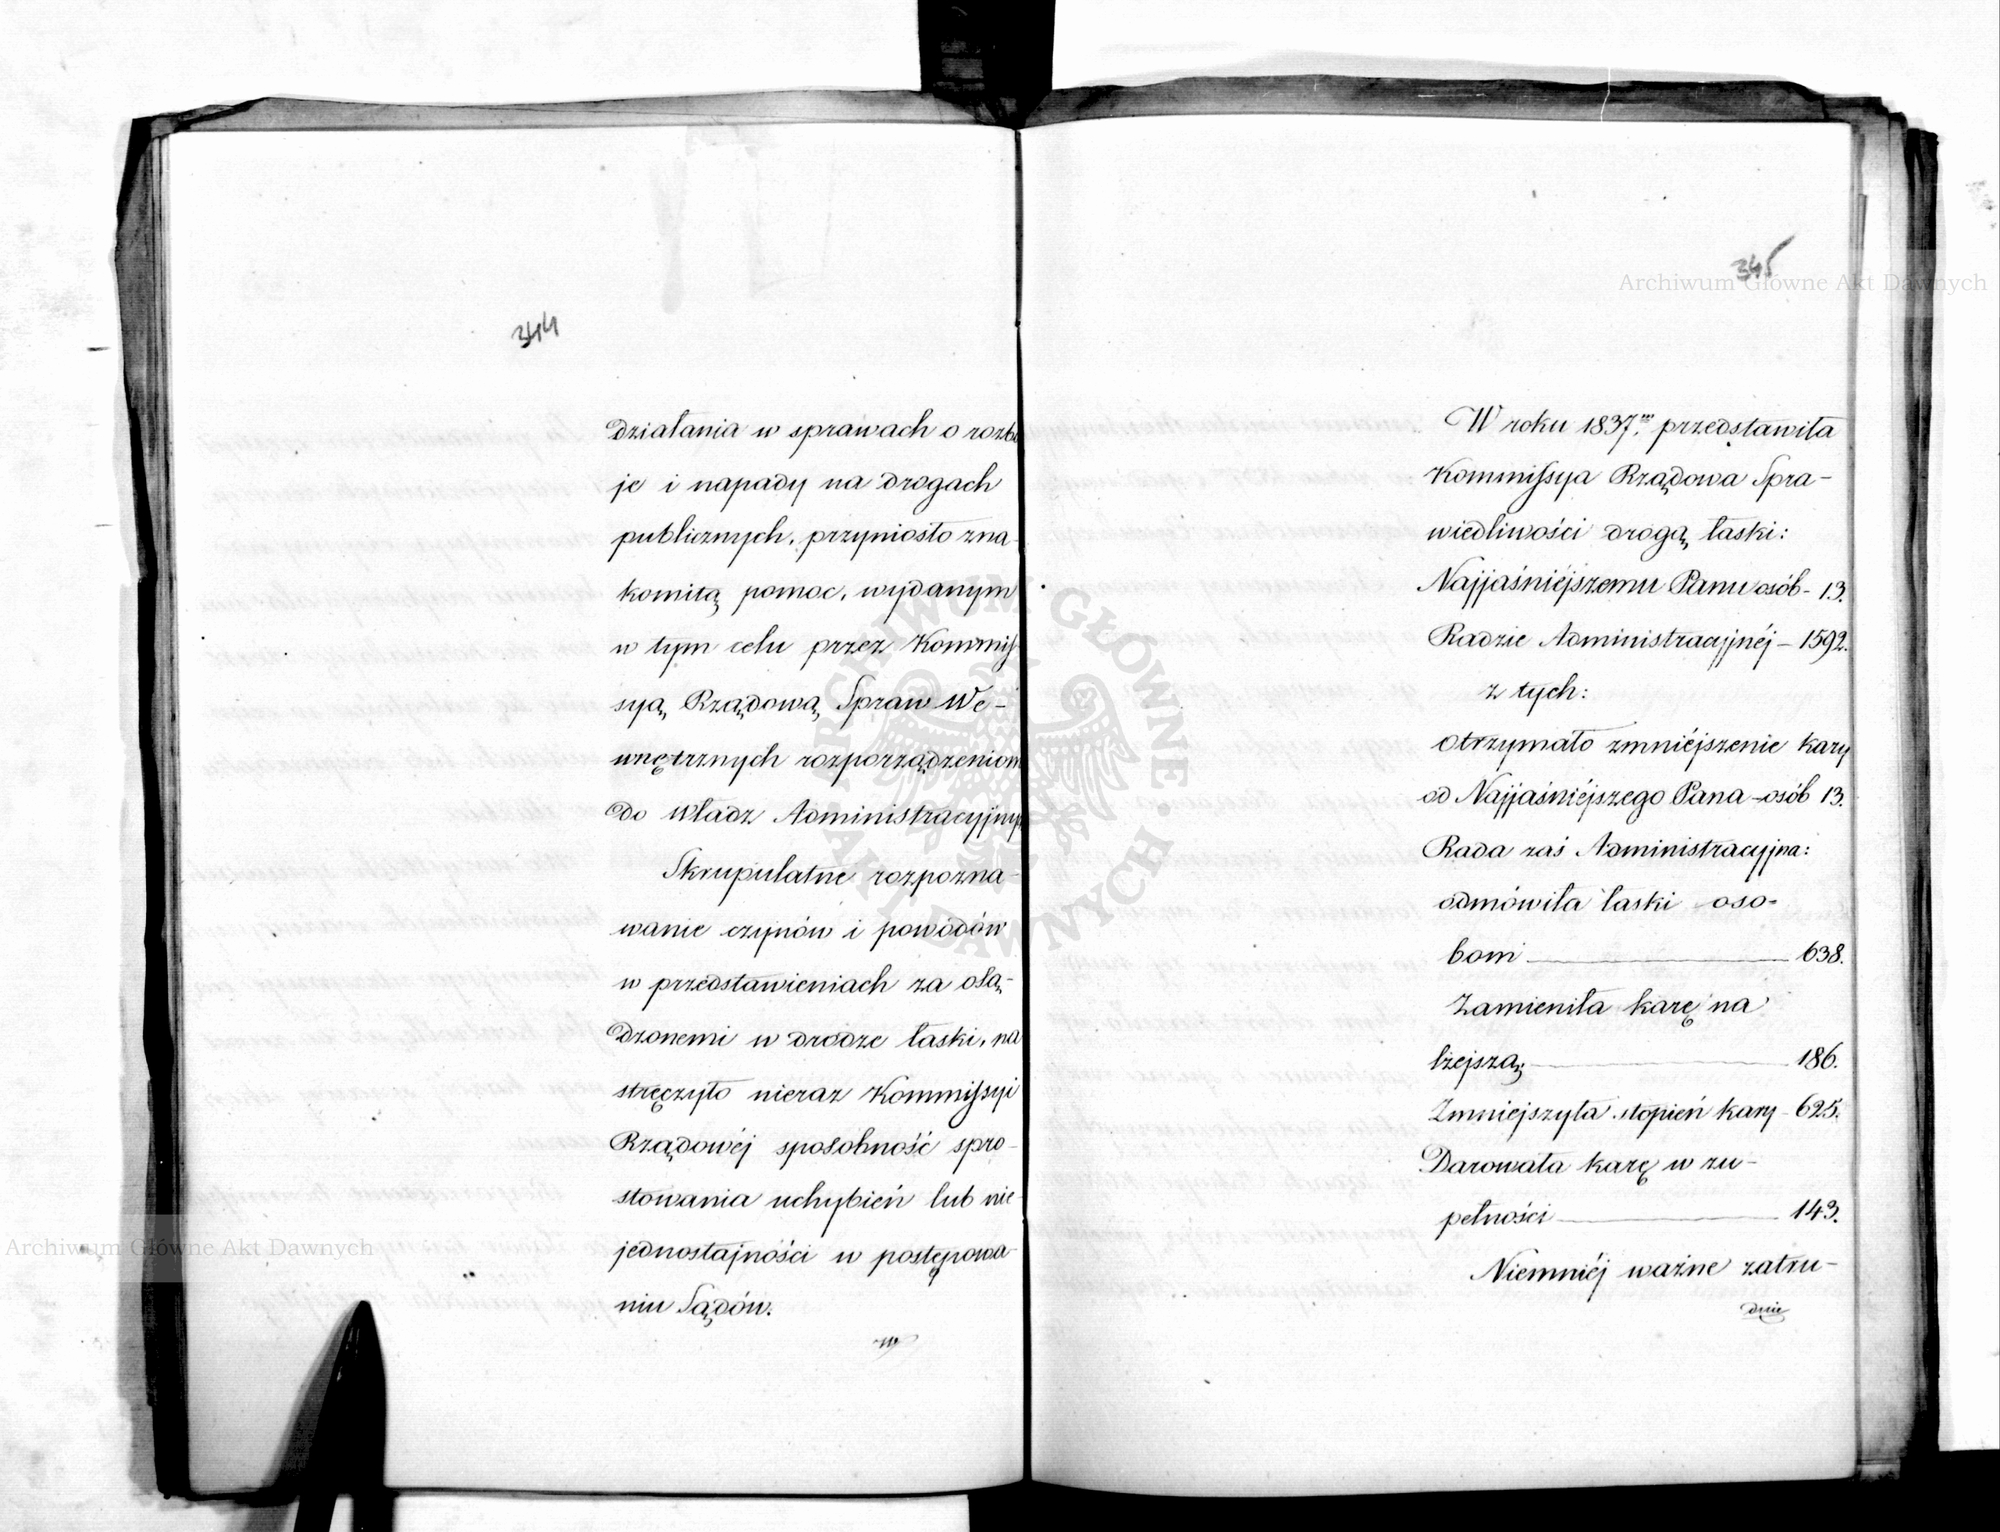 344
działania w sprawach o rozbo
je i napady na drogach
publicznych, przyniosło zna-
komitą pomoc, wydanym
w tym celu przez Kommis-
syą Rządową Spraw We-
wnętrznych rozporządzeniom
do władz Administracyjnych
Skrupulatne rozpozna-
wanie czynów i powodów
w przedstawieniach za osą-
dzonemi w drodze łaski, na
stręczyło nieraz Kommissyi
Rządowéj sposobność spro-
stowania uchybień lub nie-
jednostajności w postępowa-
niu Sądów.
W
345
W roku 1837.m przedstawiła
Kommissya Rządowa Spra-
wiedliwości drogą łaski:
Najjaśniéjszemu Panu osób - 13.
Radzie Administracyjnéj - 1592.
z tych:
otrzymało zmniéjszenie kary
od Najjaśniéjszego Pana - osób 13.
Rada zaś Administracyjna:
odmówiła łaski oso-
bom 638.
Zamieniła karę na
lżejszą 186.
Zmniejszyła stopień kary - 625.
Darowała karę w zu-
pełności 143.
Niemniéj ważne zatru-
dnie
Archiwum Główne Akt Dawnych
Archiwum Główne Akt Dawnych
ARCHIWUM GŁÓWNE • AKT DAWNYCH •